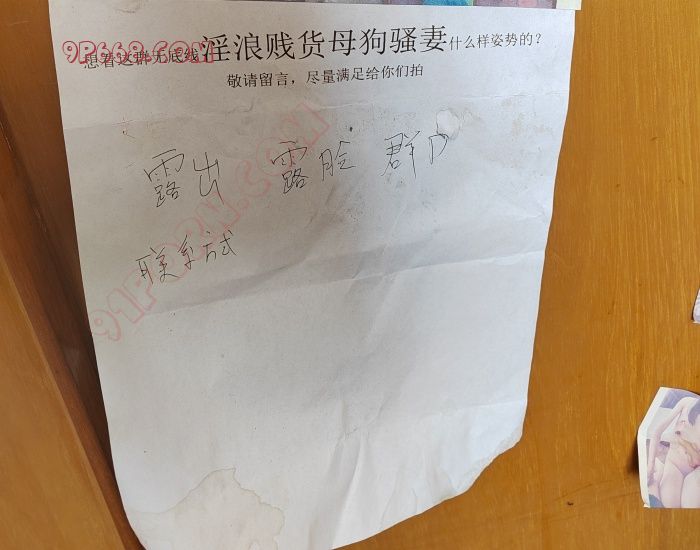 9P668.COM
想看这群无底线淫浪贱货母狗骚妻什么样姿势的？
敬请留言，尽量满足给你们拍
露出 露脸 群P
联系方式
91PORN.COM